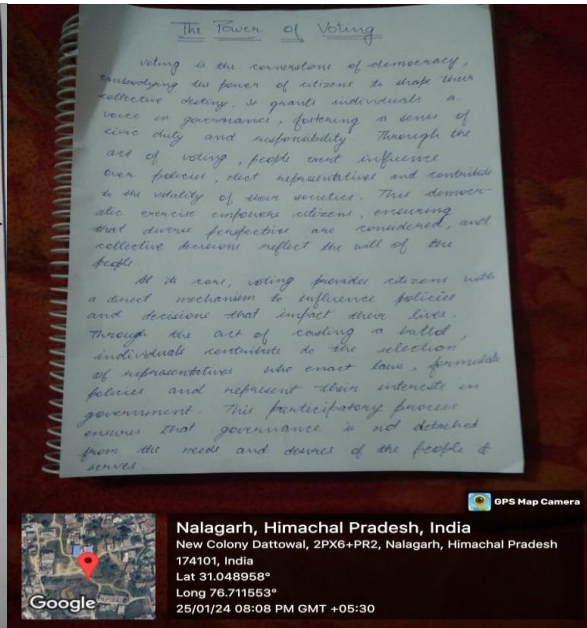 The Power of Voting
Voting is the cornerstone of democracy,
embodying the power of citizens to shape their
collective destiny. It grants individuals a
voice in governance, fostering a sense of
civic duty and responsibility Through the
act of voting, people exert influence
over policies, elect representatives and contribute
to the vitality of their societies. This democr-
atic exercise empowers citizens, ensuring
that diverse perspective are considered, and
collective decisions reflect the will of the
people.
At its core, voting provides citizens with
a direct mechanism to influence policies
and decisions that impact their lives.
Through the act of casting a ballot,
individuals contribute to the selection
of representatives who enact laws, formulate
policies and represent their interests in
government. This participatory process
ensures that governance is not detached
from the needs and desires of the people it
serves.
GPS Map Camera
Nalagarh, Himachal Pradesh, India
New Colony Dattowal, 2PX6+PR2, Nalagarh, Himachal Pradesh
174101, India
Lat 31.048958°
Long 76.711553°
25/01/24 08:08 PM GMT +05:30
Google